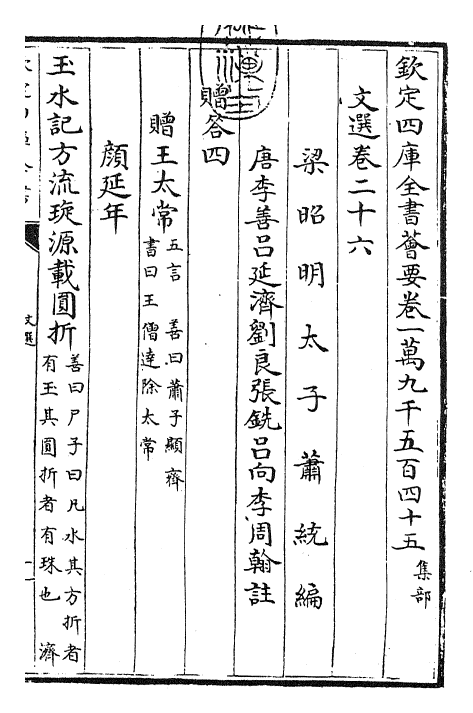 欽定四庫全書薈要卷一萬九千五百四十五 集部
文選卷二十六
梁昭明太子蕭統編
唐李善呂延濟劉良張銑呂向李周翰註
贈答四
贈王太常 五言 善曰蕭子顯齊
書曰王僧達除太常
顔延年
玉水記方流琁源載圓折 善曰尸子曰凡水其方折者
有玉其圓折者有珠也 濟
文選